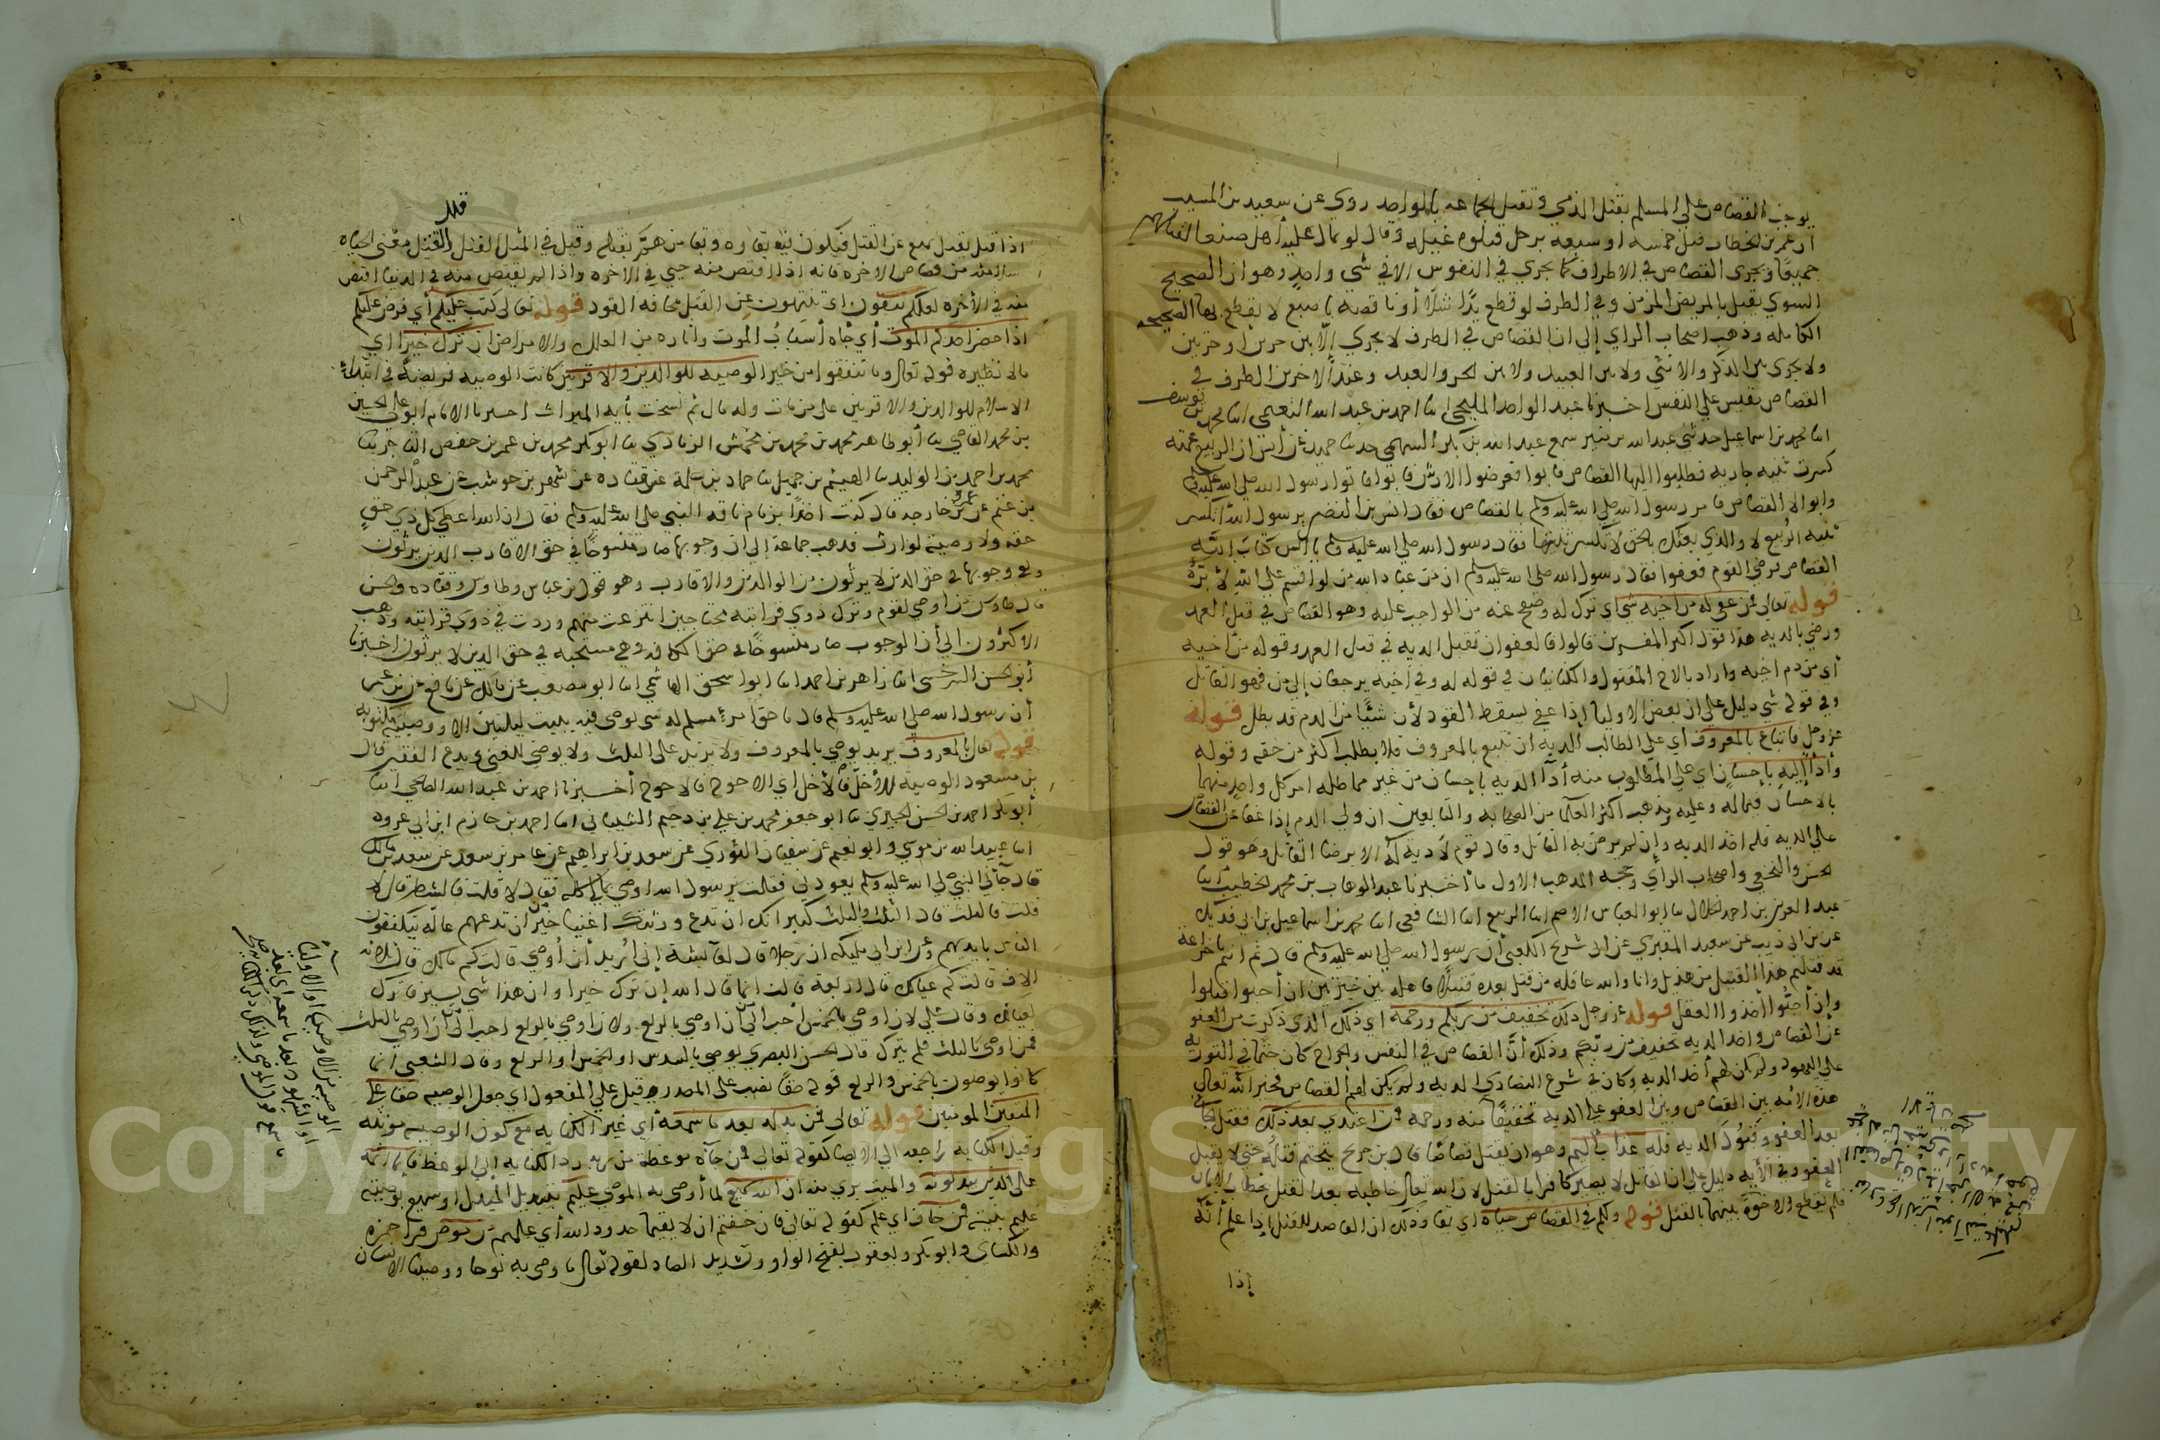 يوجب القصاص على المسلم بقتل الذمي وتقتل الجماعة بالواحد روي عن سعيد بن المسيب
ان عمر بن الخطاب قتل خمسة او سبعة برجل قتلوه غيلة وقال لو تمالا عليه أهل صنعا لقتلتهم
جميعا ويجري القصاص في الاطراف كما يجري في النفوس الا في شي واحد وهو ان الصحيح
السوي يقتل بالمريض الزمن وفي الطرف لو قطع يدا شلا أو ناقصة باصبع لا يقطع بها الصحيحة
الكاملة وذهب اصحاب الراي إلى ان القصاص في الطرف لا يجري إلا بين حرين أو حرتين
ولا يجري بين الذكر والانثي ولا بين العبيد ولا بين الحر والعبد وعند الاخرين الطرف في
القصاص مقيس علي النفس اخبرنا عبد الواحد المليحي انا احمد بن عبد الله النعيمي انا محمد بن يوسف
انا محمد بن اسماعيل حدثني عبد الله بن منير سمع عبد الله بن بكر السهمي حدثنا حميد عن أنس ان الربيع عمته
كسرت ثنية جارية فطلبوا اليها القصاص فابوا فعرضوا الارش فابوا فاتوا رسول الله صلى الله عليه وسلم
وابوا الا القصاص فامر رسول الله صلى الله عليه وسلم بالقصاص فقال انس بن النضر يرسول الله اتكسر
ثنية الربيع لا والذي بعثك بالحق لا تكسر ثنيتها فقال رسول الله صلى الله عليه وسلم يا انس كتاب الله
القصاص فرضي القوم فعفوا فقال رسول الله صلى الله عليه وسلم ان من عباد الله من لو اقسم على الله لأبره
قوله تعالى فمن عفي له من اخيه شي اي ترك له وصفح عنه من الواجب عليه وهو القصاص في قتل العمد
ورضي بالدية هذا قول اكثر المفسرين قالوا العفو ان تقبل الدية في قتل العمد وقوله من اخيه
أي من دم اخيه واراد بالاخ المقتول والكنايتان في قوله له وفي اخيه يرجعان إلى من فهو القاتل
وفي قوله شي دليل على ان بعض الاوليا إذا عفي يسقط القود لأن شيئا من الدم قد بطل قوله
عز وجل فاتباع بالمعروف أي على الطالب للدية ان يتبع بالمعروف فلا يطالب اكثر من حقه وقوله
وأدآ إليه بإحسان اي على المطلوب منه أدآ الدية بإحسان من غير مماطلة امر كل واحد منهما
بالاحسان فيما له وعليه ومذهب أكثر العلما من الصحابة والتابعين ان ولي الدم إذا عفا عن القصاص
علي الدية فله اخذ الدية وإن لم يرض به القاتل وقال قوم لا دية له الا برضا القاتل وهو قول
الحسن والنخعي واصحاب الراي وحجة المذهب الاول ما أخبرنا عبد الوهاب بن محمد الخطيب أنا
عبد العزيز بن احمد الخلال نا ابو العباس الاصم انا الربيع انا الشافعي انا محمد بن اسماعيل بن ابي فديك
عن بن ابي ذيب عن سعيد المقبري عن ابي شريح الكعبي أن رسول الله صلى الله عليه وسلم قال ثم انتم يا خزاعة
قد قتلتم هذا القتيل من هذيل وانا والله عاقله من قتل بعده قتيلا فاهله بين خيرتين ان أحبوا قتلوا
وإن أحبوا أخذوا العقل قوله عز وجل ذلك تخفيف من ربكم ورحمة اي ذلك الذي ذكرت من العفو
عن القصاص واخذ الدية تخفيف من ربكم وذلك أن القصاص في النفس والجراح كان حتما في التورية
على اليهود ولم يكن لهم أخذ الدية وكان في شرع النصارى الدية ولم يكن لهم القصاص فخير الله تعالى
هذه الامة بين القصاص وبين العفو على الدية تخفيفا منه ورحمة فمن اعتدى بعد ذلك فقتل الجاني
بعد العفو وقبول الدية فله عذاب أليم وهو ان يقتل قصاصا قال بن جريج يتحتم قتله حتى لا يقبل
العفو وفي الآية دليل على ان القاتل لا يصير كافرا بالقتل لان الله تعالى خاطبه بعد القتل بخطاب الايمان
فلم يقطع الاخوة بينهما بالقتل قوله ولكم في القصاص حياة اي بقا وذلك ان القاصد للقتل إذا علم أنه
إذا
قتل
اذا قتل يقتل يمتنع عن القتل فيكون فيه بقاؤه وبقا من هم بقتله وقيل في المثل القتل القتل وقيل معنى الحياة
سلامته من قصاص الاخرة فانه اذا اقتص منه حيي في الاخرة واذا لم يقتص منه في الدنيا اقتص
منه في الأخرة لعلكم تتقون اي تنتهون عن القتل مخافة القود قوله تعالى كتب عليكم أي فرض عليكم
اذا حضر احدكم الموت أي جاه أسباب الموت واثاره من العلل والامراض ان ترك خيرا اي
مالا نظيره قوله تعالى وما تنفقوا من خير الوصية للوالدين والاقربين كانت الوصية فريضة في ابتداء
الاسلام للوالدين والاقربين على من مات وله مال ثم نسخت بأية الميراث اخبرنا الامام ابو علي الحسين
بن محمد القاضي نا أبو طاهر محمد بن محمد بن محمش الزيادي نا ابو بكر محمد بن عمر بن حفص التاجر نا
محمد بن احمد بن الوليد نا الهيثم بن جميل نا حماد بن سلمة عن قتادة عن شهر بن حوشب عن عبد الرحمن
بن غنم عن عمرو بن خارجة قال كنت اخذا بزمام ناقة النبي صلى الله عليه وسلم فقال ان الله اعطى كل ذي حق
حقه ولا وصية لوارث فذهب جماعة إلى ان وجوبها صار منسوخا في حق الاقارب الذين يرثون
وبقي وجوبها في حق الذين لا يرثون من الوالدين والاقارب وهو قول بن عباس وطاوس وقتادة والحسن
قال طاوس من اوصى لقوم وترك ذوي قرابته محتاجين انتزعت منهم وردت في ذوي قرابته وذهب
الاكثرون الي أن الوجوب صار منسوخا في حق الكافة وهي مستحبة في حق الذين لا يرثون اخبرنا
أبو الحسن السرخسي انا زاهر بن احمد انا ابو اسحق الهاشمي انا ابو مصعب عن مالك عن نافع عن بن عمر
أن رسول الله صلى الله عليه وسلم قال ما حق امرئ مسلم له شي يوصى فيه يبيت ليلتين الا ووصيته مكتوبة
قوله تعالى بالمعروف يريد يوصي بالمعروف ولا يزيد على الثلث ولا يوصي للغني ويدع الفقير قال
بن مسعود الوصية للأخل فالأخل اي الاحوج فالاحوج أخبرنا احمد بن عبد الله الصالحي انا
أبو بكر احمد بن الحسن الحيري نا ابو جعفر محمد بن علي بن دحيم الشيباني انا احمد بن حازم ابن ابي غرزة
انا عبيد الله بن موسى وابو نعيم عن سفيان الثوري عن سعد بن ابراهيم عن عامر بن سعد عن سعد بن مالك
قال جآني النبي صلى الله عليه وسلم يعودني فقلت يرسول الله اوصي بمالي كله فقال لا قلت فالشطر قال لا
قلت فالثلث قال الثلث والثلث كثير انك ان تدع ورثتك اغنيا خير من ان تدعهم عالة يتكففون
الناس بايديهم وعن ابن ابي مليكة ان رجلا قال لعائشة إني أريد أن أوصي قالت كم مالك قال ثلاثة
الاف قالت كم عيالك قال اربعة قالت انما قال الله إن ترك خيرا وان هذا شي يسير فاترك
لعيالك وقال علي لان اوصي بالخمس أحب إلى من أن اوصي بالربع ولان اوصي بالربع احب إلي من أن اوصي بالثلث
فمن اوصى بالثلث فلم يترك قال الحسن البصري يوصي بالسدس او الخمس او الربع وقال الشعبي انما
كانوا يوصون بالخمس والربع قوله حقا نصب على المصدر وقيل علي المفعول اي جعل الوصية حقا على
المتقين المومنين قوله تعالى فمن بدله بعد ما سمعه أي غير الكناية مع كون الوصية مونثة
وقيل الكناية راجعة الي الايصا كقوله تعالى فمن جآه موعظة من ربه رد الكناية إلي الوعظ فإنما اثمه
على الذين يبدلونه والميت بري منه ان الله سميع لما أوصى به الموصي عليم بتبديل المبدل او سميع بوصيته
عليم بنيته فمن خاف اي علم كقوله تعالى فان خفتم ان لا يقيما حدود الله أي علمتم من موص قرا حمزة
والكساي وابو بكر ويعقوب بفتح الواو وتشديد الصاد لقوله تعالى ما وصى به نوحا ووصينا الانسان